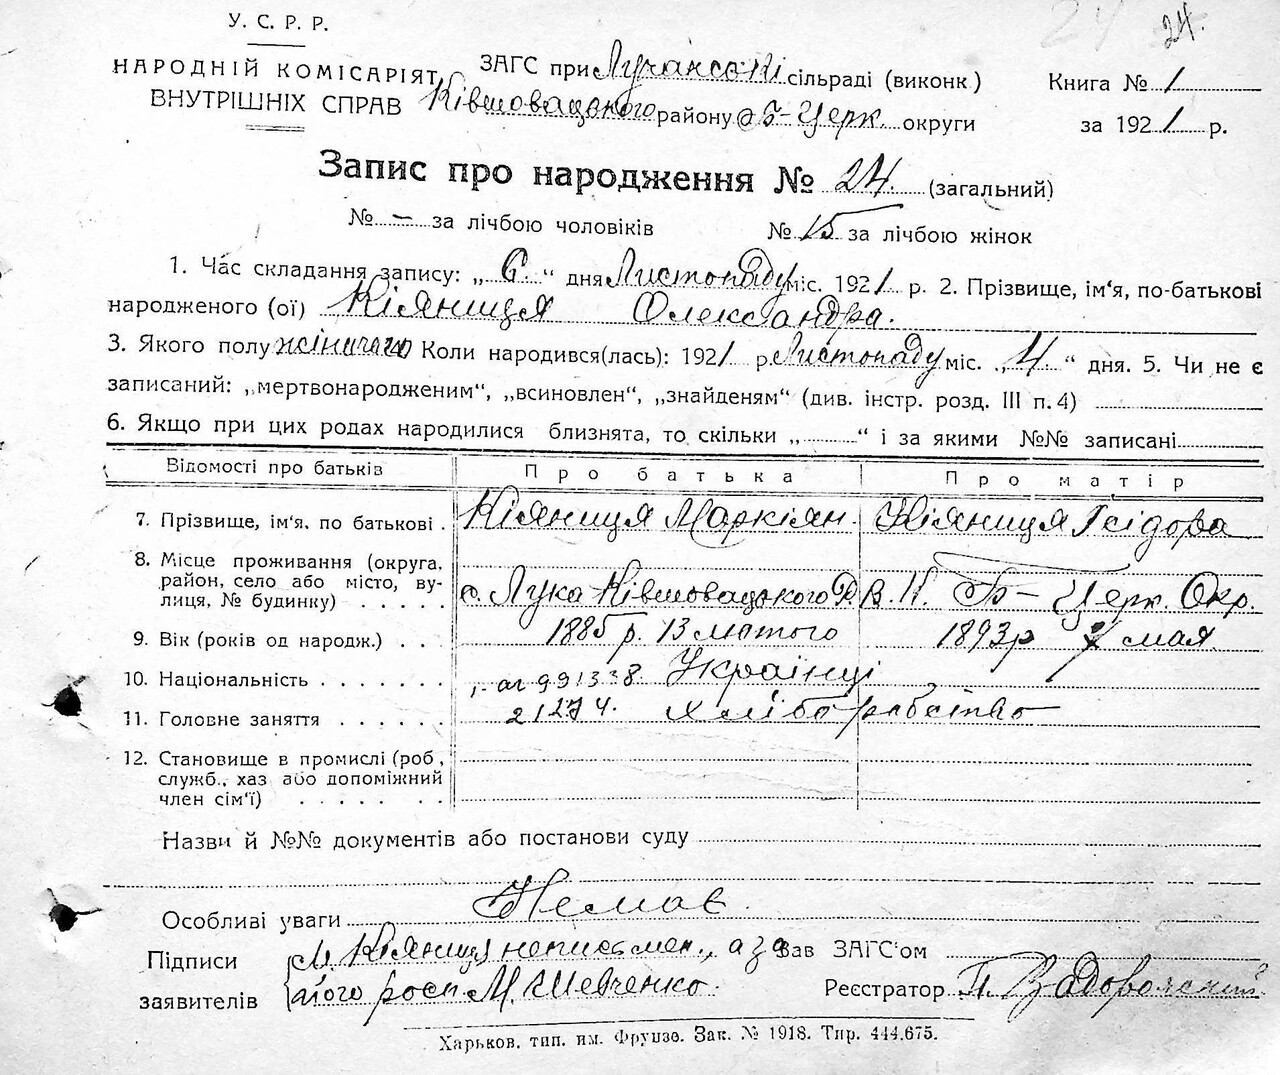 24.
У. С. Р. Р.
НАРОДНІЙ КОМІСАРІЯТ
ВНУТРІШНІХ СПРАВ
ЗАГС при Лучанській сільраді (виконк)
Ківшовацького району Б-Церк. округи
Книга № 1
за 1921 р.
Запис про народження № 24. (загальний)
№ – за лічбою чоловіків № 15 за лічбою жінок
1. Час складання запису: „ 6. “ дня Листопаду міс. 1921 р. 2. Прізвище, ім'я, по-батькові
народженого (ої) Кіяниця Олександра.
3. Якого полу жіночого Коли народився(лась): 1921 р Листопаду міс. „ 4. “ дня. 5. Чи не є
записаний: „мертвонародженим“, „всиновлен“, „знайденям“ (див. інстр. розд. III п. 4)
6. Якщо при цих родах народилися близнята, то скільки „ “ і за якими №№ записані
Відомості про батьків Про батька Про матір
7. Прізвище, ім'я. по батькові . Кіяниця Маркіян. Кіяниця Ісідора
8. Місце проживання (округа,
район, село або місто, ву-
лиця, № будинку) . . . . . с. Лука Ківшовацького Р. В. К. Б-Церк. Окр.
9. Вік (років од народж.) . . . 1885 р. 13 лютого 1893 р 7 мая.
10. Національність . . . . . . . 991338. Українці
11. Головне заняття . . . . . . 21274. хліборобство
12. Становище в промислі (роб,
служб., хаз або допоміжний
член сім'ї) . . . . . . .
Назви й №№ документів або постанови суду
Особливі уваги Немає.
Підписи
заявителів
М. Кіяниця неписьмен., а за
його росп М. Шевченко.
Зав ЗАГС'ом
Реєстратор П. Задоровський
Харьков. тип. им. Фрунзе. Зак. № 1918. Тир. 444.675.